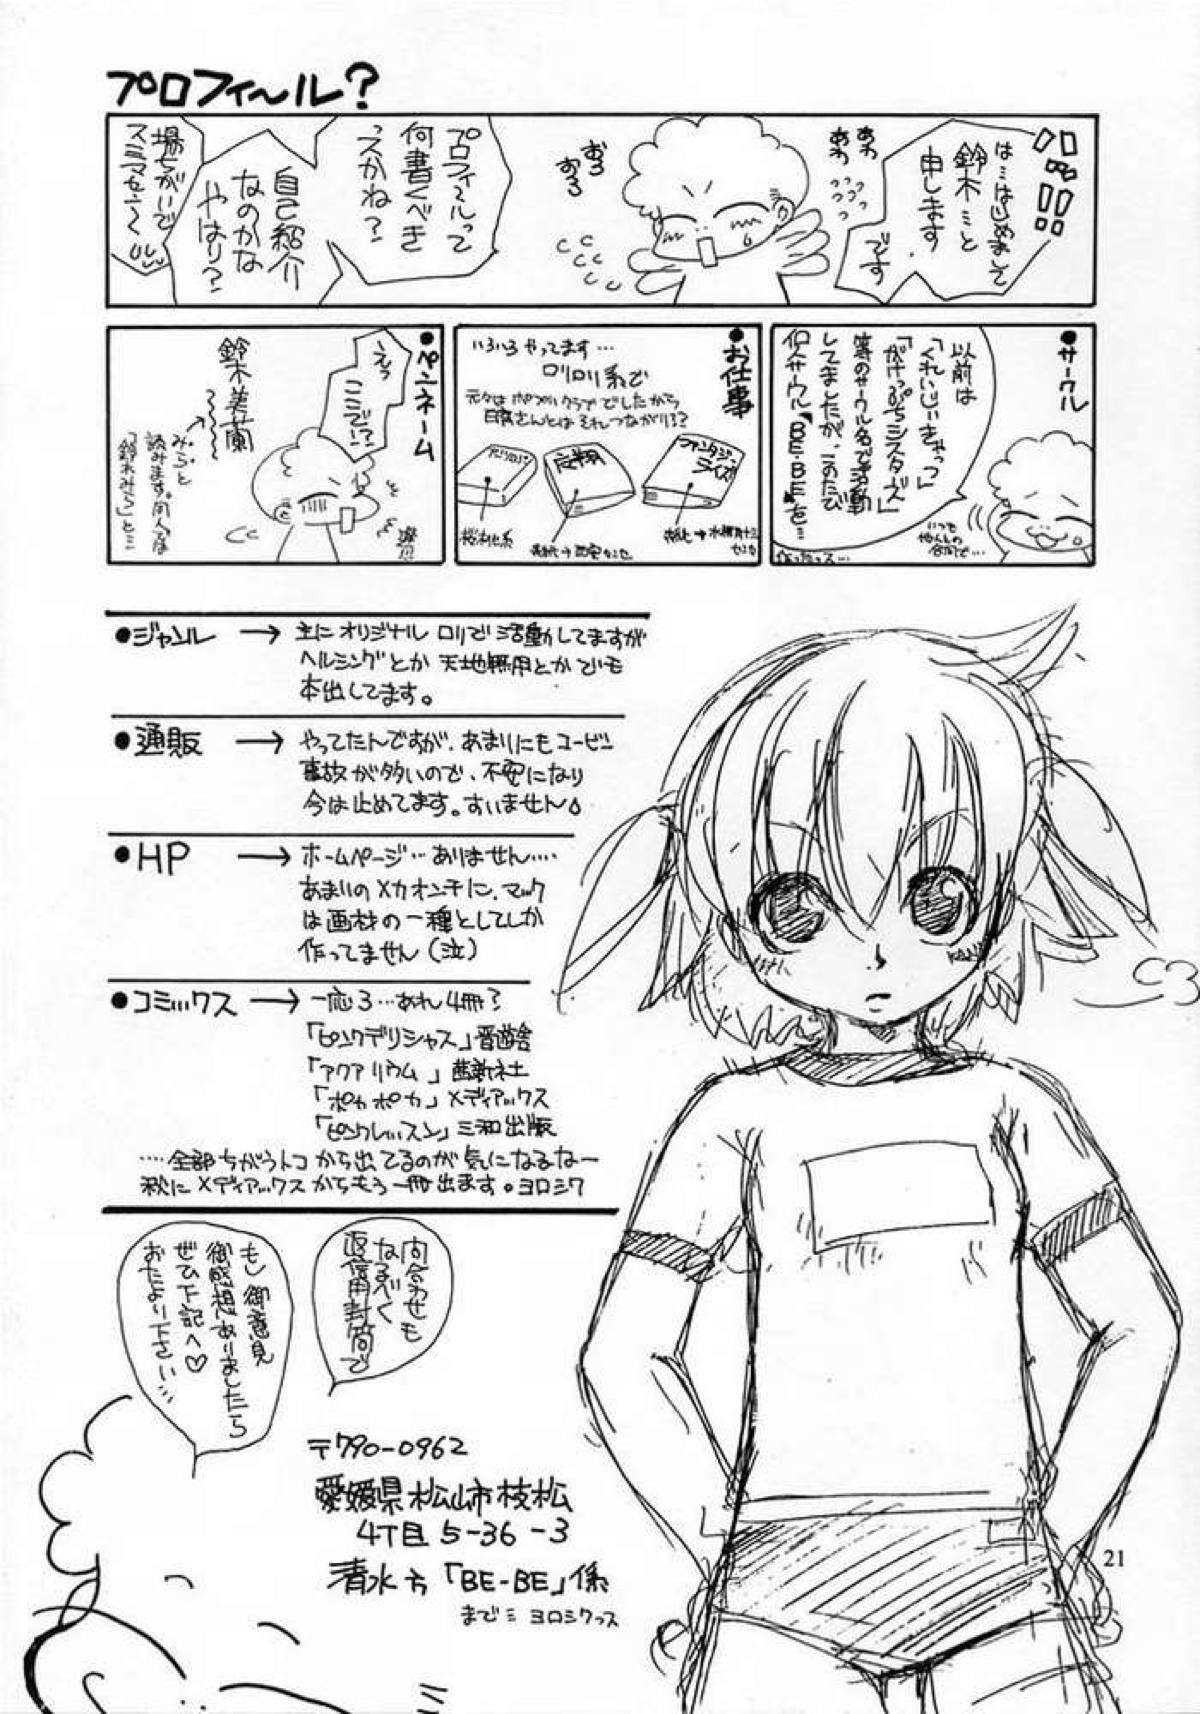 プロフィ～ル？
ハッ!!
は…はじめまして
鈴木ミと
申します
です
あわ
あわ
おろ
おろ
プロフィ～ルって
何書くべき
っスかね？
自己紹介
なのかな
やはり？
場ちがいで
スミマセン～
●サークル
以前は
「くれいじぃきゃっつ」
「がけっぷちシスターズ」
等のサークル名で活動
してましたが、このたび
個人サークル「BE-BE」を…
作ったっス…
いつも
●お仕事
いろいろやってます…
ロリロリ系で
●ペンネーム
えっ
ここで!?
鈴木美蘭
みらと
読みます。同人では
「鈴木みら」と…
●ジャンル → 主にオリジナル ロリで活動してますが
ヘルシングとか 天地無用とかでも
本出してます。
●通販 → やってたんですが、あまりにもユービン
事故が多いので、不安になり
今は止めてます。すいません
●HP → ホームページ…ありません….
あまりのメカオンチに、マック
は画材の一種としてしか
作ってません(泣)
●コミックス → 一応3…あれ4冊？
「ピンクデリシャス」晋遊舎
「アクアリウム」茜新社
「ポカポカ」メディアックス
「ピンクレッスン」三和出版
….全部ちがうトコから出てるのが気になるなー
秋にメディアックスからもう一冊出ます。ヨロシク
向合わせも
なるべく
返信用封筒で
もし御意見
御感想ありましたら
ぜひ下記へ♡
おたより下さい…
〒790-0962
愛媛県松山市枝松
4丁目5-36-3
清水方「BE-BE」係
まで ヨロシクっス
21